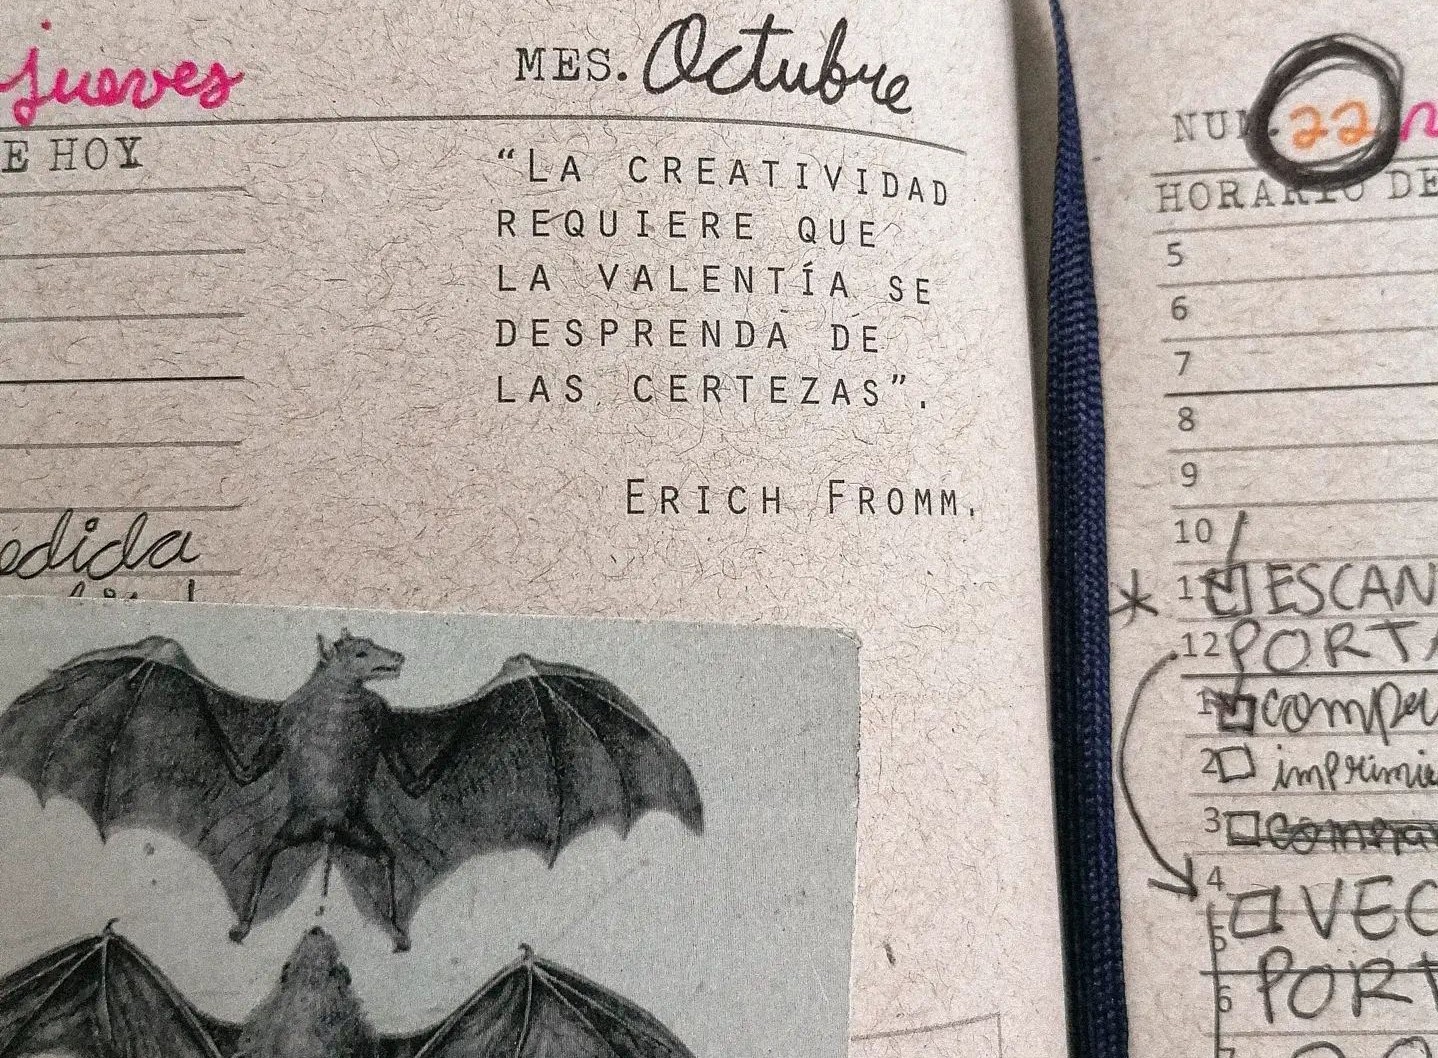 jueves
MES. Octubre
E HOY
“LA CREATIVIDAD
REQUIERE QUE
LA VALENTÍA SE
DESPRENDA DE
LAS CERTEZAS”.
ERICH FROMM.
edida
NUM. 22
HORARIO DE
5
6
7
8
9
10
11 ESCAN
12 PORTA
1
2 imprimi
3
4
VEC
5
6 PORT
7